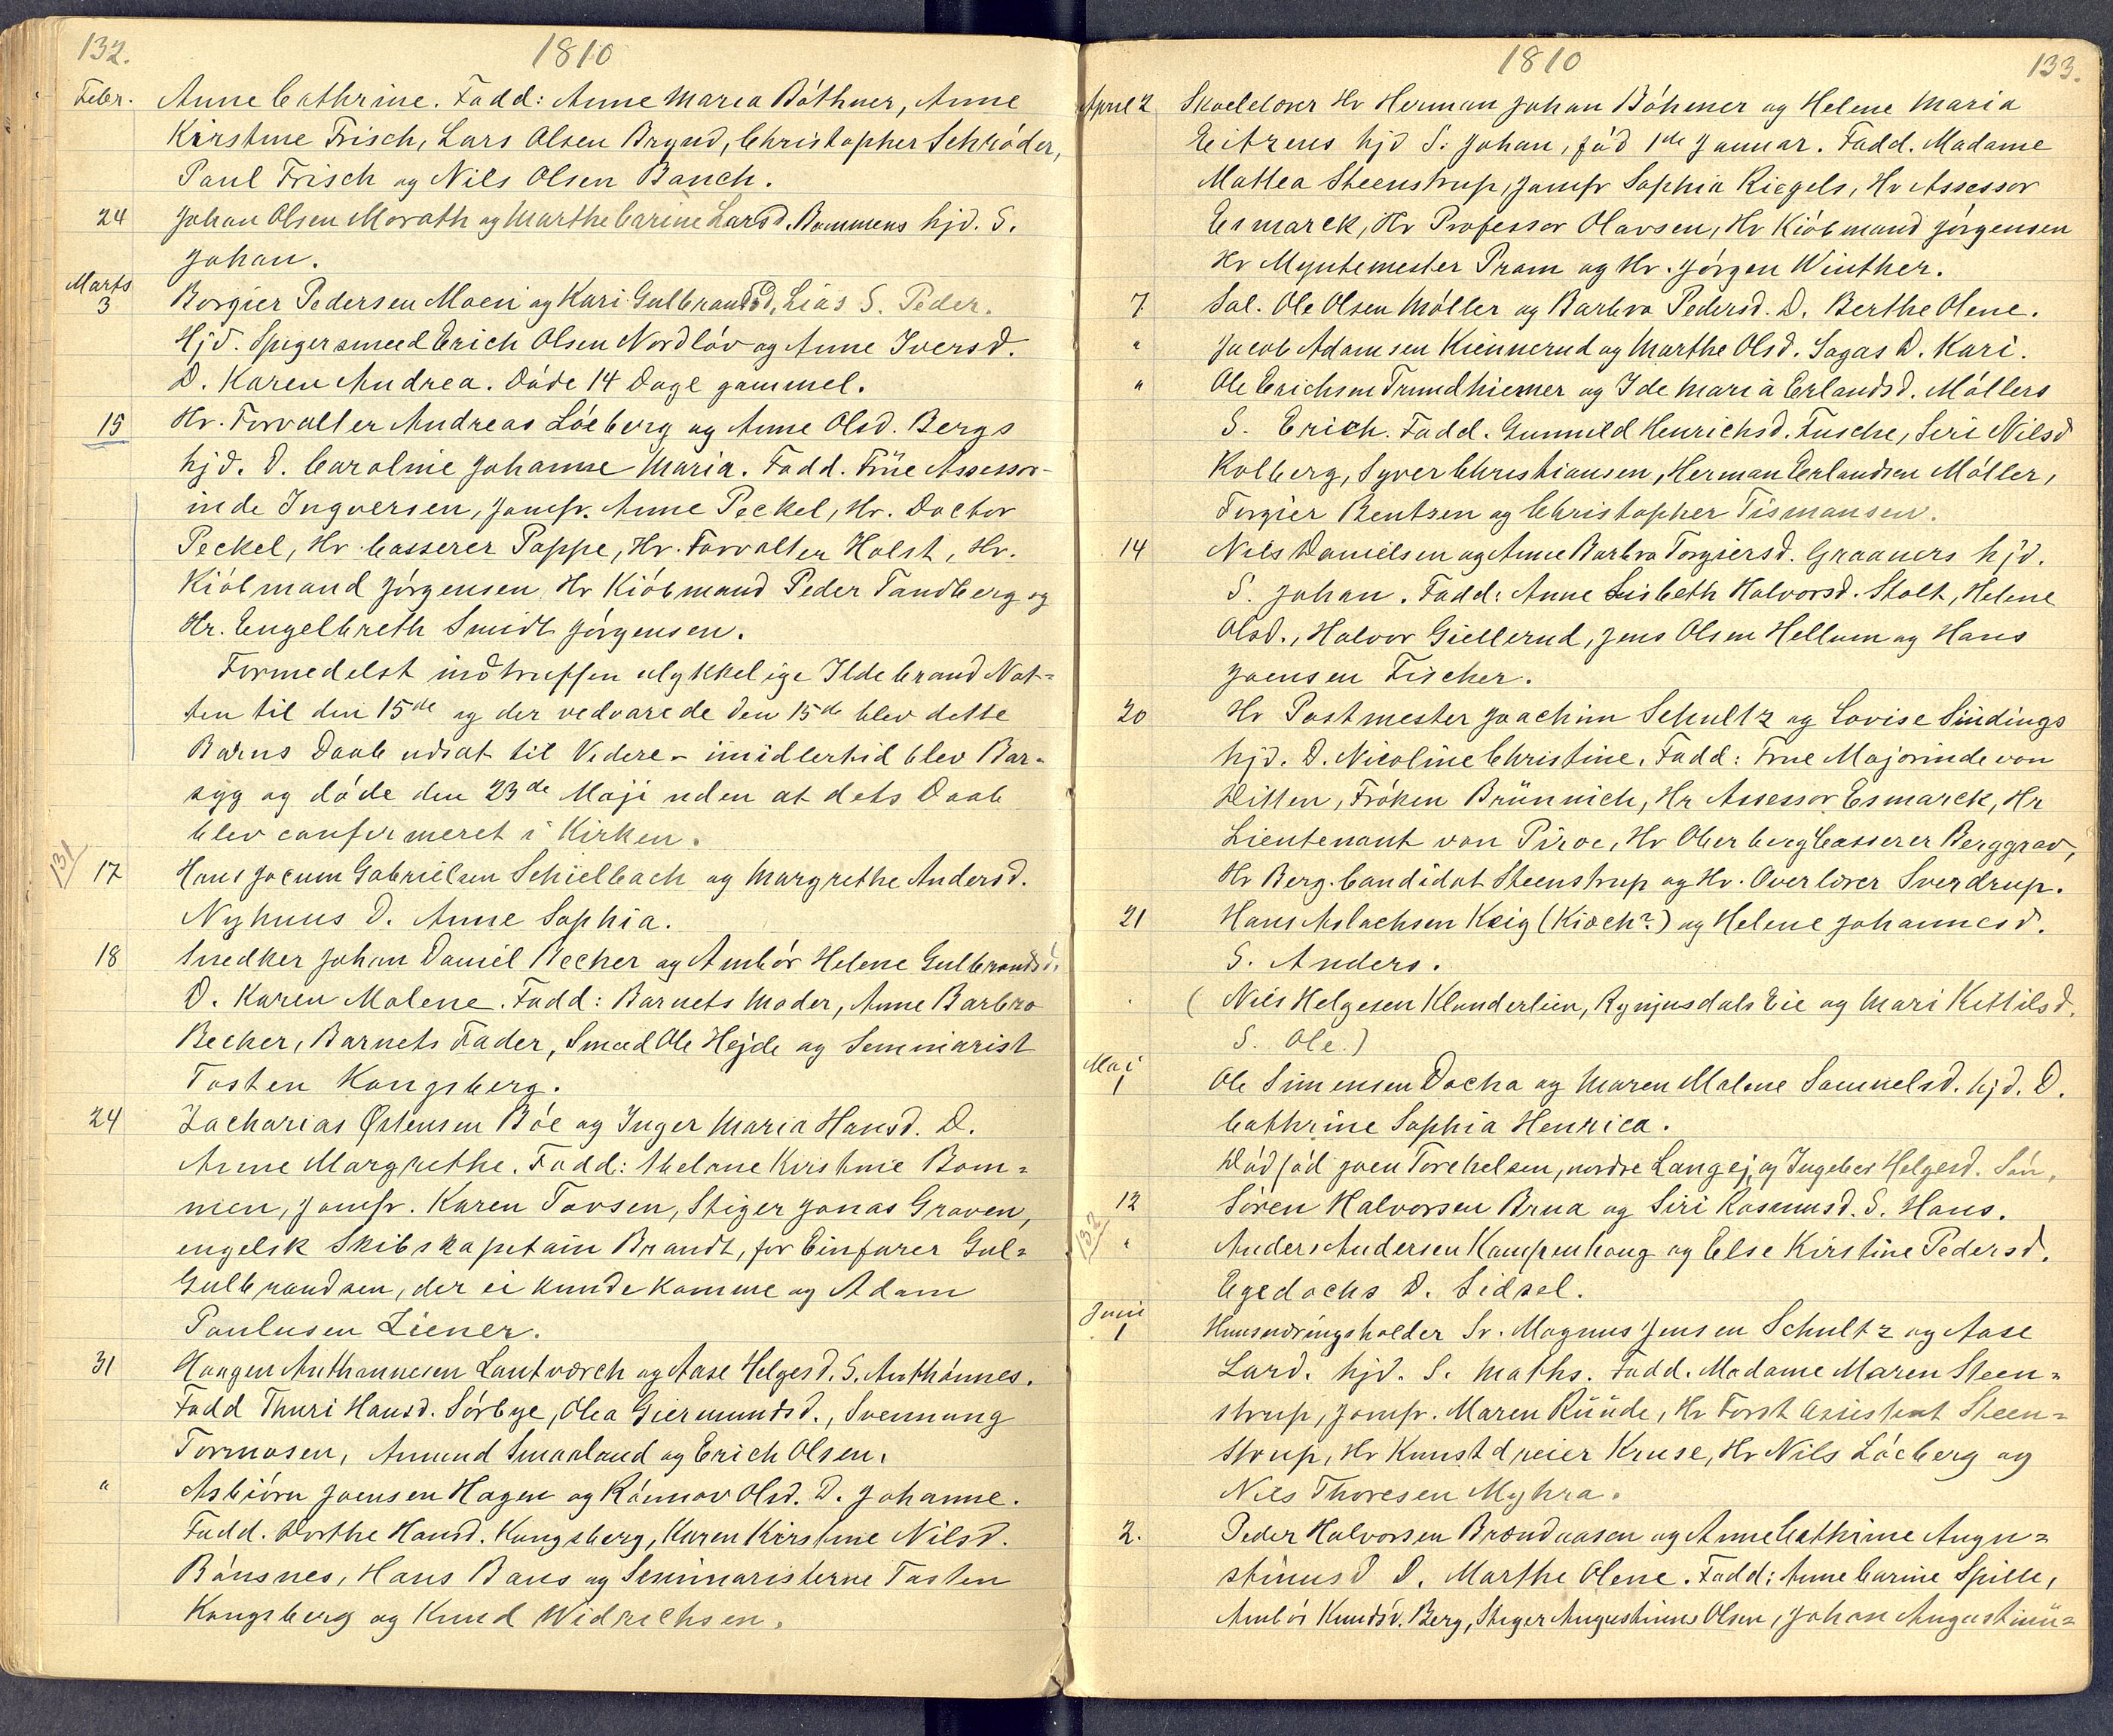 132.
1810
Febr. Anne Cathrine. Fadd: Anne Maria Bóthner, Anne
Kirstine Frisch, Lars Olsen Brynd, Christopher Schróder,
Paul Frisch og Nils Olsen Banch.
24 Johan Olsen Morath og Marthe Carine Larsd. Bommens hjd. S.
Johan.
Marts
3 Borgier Pedersen Moen og Kari Gulbrandsd. Lias S. Peder.
Hjd. Spigersmed Erich Olsen Nordlóv og Anne Iversd.
D. Karen Andrea. Dóde 14 Dage gammel.
15 Hr. Forvalter Andreas Lóeberg og Anne Olsd. Bergs
hjd. D. Caroline Johanne Maria. Fadd. Frue Assessor-
inde Ingversen, Jomfr. Anne Peckel, Hr. Doctor
Peckel, Hr. Casserer Poppe, Hr. Forvalter Holst, Hr.
Kióbmand Jórgensen, Hr Kióbmand Peder Tandberg og
Hr. Engelbreth Smidt Jórgensen.
Formedelst indtruffen ulykkelige Ildebrand Nat-
ten til den 15de og der vedvarede den 15de blev dette
Barns Daab udsat til Videre - imidlertid blev Bar-
syg og dóde den 23de Maji uden at dets Daab
blev confirmeret i Kirken.
131
17 Hans Jocum Gabrielsen Schielbach og Margrethe Andersd.
Nyhuus D. Anne Sophia.
18 Snedker Johan Daniel Becker og Ambór Helene Gulbrandsd.
D. Karen Malene. Fadd: Barnets Moder, Anne Barbro
Becker, Barnets Fader, Smed Ole Hejde og Seminarist
Tosten Kongsberg.
24 Zacharias Østensen Bóe og Inger Maria Hansd. D.
Anne Margrethe. Fadd: Helene Kirstine Bom-
men, Jomfr. Karen Tovsen, Stiger Jonas Graven,
engelsk Skibskapitain Brandt, for Einfarer Gul-
Gulbrandsen, der ei kunde komme og Adam
Paulusen Liener.
31 Haagen Anthonnesen Lautværch og Aase Helgesd. S. Anthónnes.
Fadd Thuri Hansd. Sórbye, Olea Giermundsd., Svennung
Tormosen, Amund Smaaland og Erich Olsen.
" Asbiórn Joensen Hagen og Rónnov Olsd. D. Johanne.
Fadd. Dorthe Hansd. Kongsberg, Karen Kirstine Nilsd.
Bónsnes, Hans Baus og Seminaristerne Tosten
Kongsberg og Knud Widrichsen.
1810
133.
April 2 Skoelelærer Hr Herman Johan Bóhmer og Helene Maria
Eitzens hjd S. Johan, fód 1de Januar. Fadd. Madame
Mattea Steenstrup, Jomfr Sophia Riegels, Hr Assessor
Esmarck, Hr Professor Olavsen, Hr Kióbmand Jórgensen
Hr Myntemester Pram og Hr. Jórgen Winther.
7 Sal. Ole Olsen Móller og Barbro Pedersd. D. Berthe Olene.
" Jacob Adamsen Kiennerud og Marthe Olsd. Sagas D. Kari.
" Ole Erichsen Trundhiemer og Ide Maria Erlandsd. Móllers
S. Erich. Fadd. Gunnild Henrichsd. Fusche, Siri Nilsd
Kolberg, Syver Christiansen, Herman Erlandsen Móller,
Torgier Bentzen og Christopher Tismansen.
14 Nils Danielsen og Anne Barbro Torgiersd. Graaners hjd.
S. Johan. Fadd: Anne Lisbeth Halvorsd. Stolt, Helene
Olsd., Halvor Giellerud, Jens Olsen Hellum og Hans
Joensen Fischer.
20 Hr Postmester Joachim Schultz og Lovise Sindings
hjd. D. Nicoline Christine. Fadd: Frue Majorinde von
Ditten, Fróken Brünnich, Hr Assessor Esmarck, Hr
Lieutenant von Piroe, Hr Oberbergcasserer Berggrav,
Hr Berg. Candidat Steenstrup og Hr. Overlærer Sverdrup.
21 Hans Aslachsen Keig (Kiæch?) og Helene Johannesd.
S. Anders.
(Nils Helgesen Klunderlien, Rynjusdals Eie og Mari Kittilsd.
S. Ole.)
Mai
1 Ole Simensen Docka og Maren Malene Samuelsd. hjd. D.
Cathrine Sophia Henrica.
Dódfód Joen Torchelsen, nordre Langej og Ingeber Helgesd. Són.
12 Sóren Halvorsen Brua og Siri Rasmusd. S. Hans.
132
" Anders Andersen Kampenhoug og Else Kirstine Pedersd.
Egedochs D. Sidsel.
Juni
1 Huusnæringsholder Sr. Magnus Jensen Schultz og Aase
Larsd. hjd. S. Maths. Fadd. Madame Maren Steen-
strup, Jomfr. Maren Rüüde, Hr Forst Assistent Steen-
strup, Hr Kunstdreier Kruse, Hr Nils Lóeberg og
Nils Thoresen Myhra.
2. Peder Halvorsen Brændaasen og Anne Cathrine Augu-
stinusd D. Marthe Olene. Fadd: Anne Carine Spille,
Ambór Knudsd. Berg, Stiger Augustinus Olsen, Johan Augustinu-